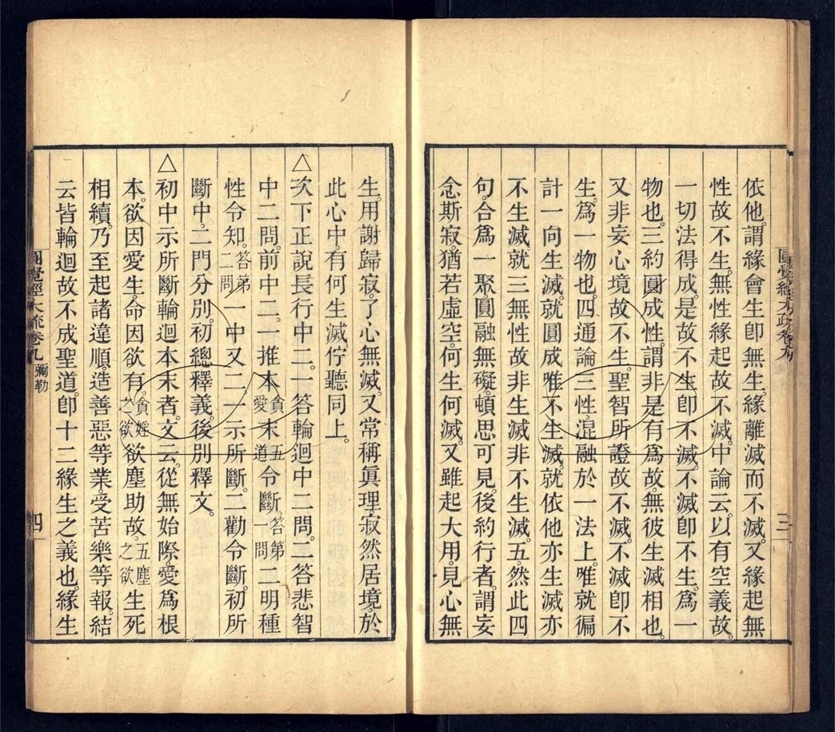 依他。謂緣會生卽無生。緣離滅而不滅。又緣起無
性故不生。無性緣起故不滅。中論云。以有空義故。
一切法得成。是故不生卽不滅。不滅卽不生。爲一
物也。三約圓成性。謂非是有爲故。無彼生滅相也。
又非妄心境故不生。聖智所證故不滅。不滅卽不
生。爲一物也。四通論三性混融於一法上。唯就徧
計一向生滅。就圓成唯不生滅。就依他亦生滅亦
不生滅。就三無性故非生滅非不生滅。五。然此四
句。合爲一聚。圓融無礙。頓思可見。後約行者。謂妄
念斯寂。猶若虛空。何生何滅。又雖起大用。見心無
圓覺經大疏卷九
三
生。用謝歸寂。了心無滅。又常稱眞理。寂然居境。於
此心中。有何生滅。佇聽同上。
△次下正說長行中二。一答輪迴中二問。二答悲智
中二問。前中二。一推本貪愛末五道令斷。答第一問二明種
性令知。答第二問一中又二。一示所斷。二勸令斷。初所
斷中。二門分別。初總釋義。後別釋文。
△初中示所斷輪迴本末者。文云。從無始際。愛爲根
本。欲因愛生。命因欲有。貪婬之欲欲塵助故。五塵之欲生死
相續。乃至起諸違順。造善惡等業。受苦樂等報。結
云皆輪迴故不成聖道。卽十二緣生之義也。緣生
圓覺經大疏卷九 彌勒
四